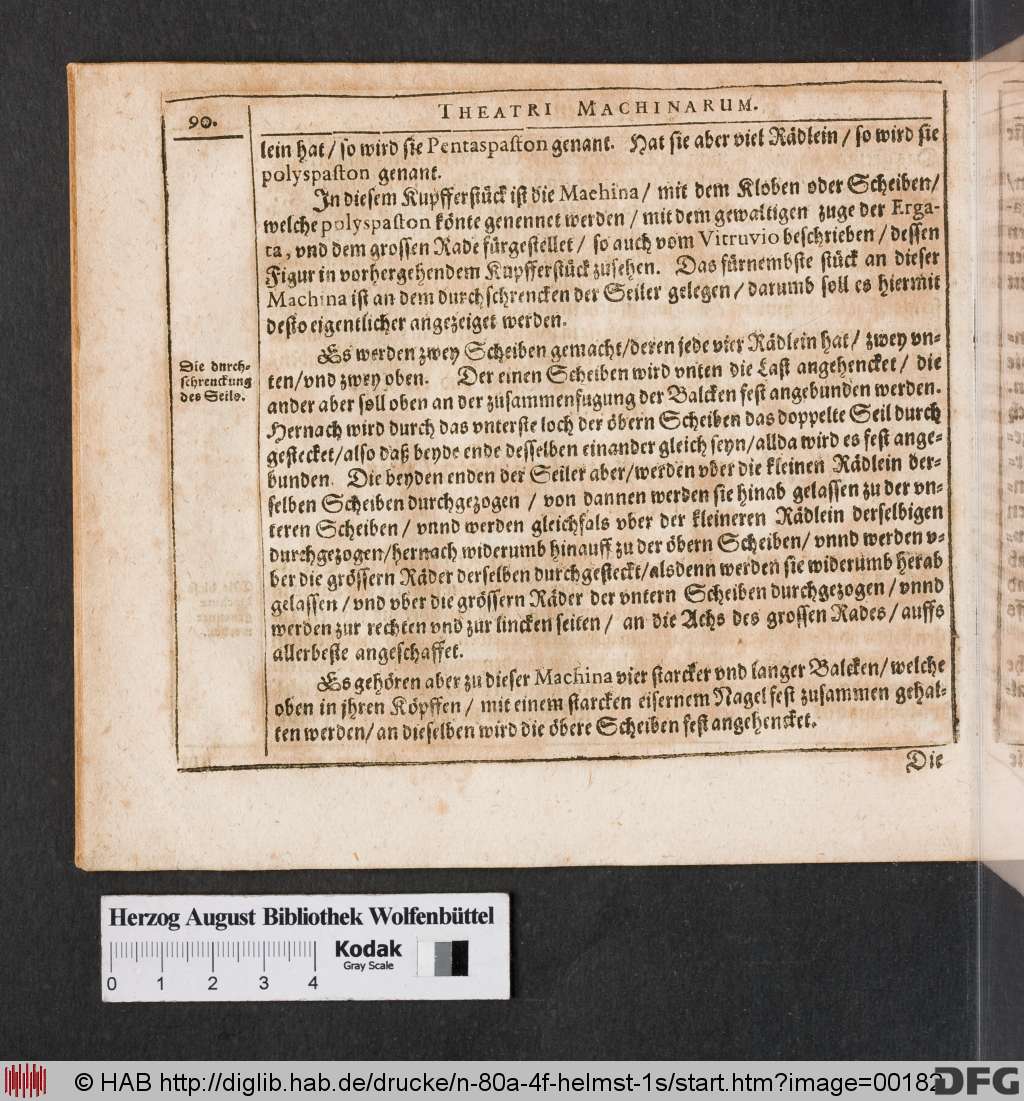 90.
THEATRI MACHINARUM.
lein hat / so wird sie Pentaspaston genant. Hat sie aber viel Rädlein / so wird sie
polyspaston genant.
In diesem Kupfferstück ist die Machina / mit dem Kloben oder Scheiben /
welche polyspaston könte genennet werden / mit dem gewaltigen zuge der Erga-
ta, vnd dem grossen Rade fürgestellet / so auch vom Vitruvio beschrieben / dessen
Figur in vorhergehendem Kupfferstück zusehen. Das fürnembste stück an dieser
Machina ist an dem durchschrencken der Seiler gelegen / darumb soll es hiermit
desto eigentlicher angezeiget werden.
Die durch-
schrenckung
des Seils.
Es werden zwey Scheiben gemacht/deren jede vier Rädlein hat / zwey vn-
ten/vnd zwey oben. Der einen Scheiben wird vnten die Last angehencket / die
ander aber soll oben an der zusammenfugung der Balcken fest angebunden werden.
Hernach wird durch das vnterste loch der öbern Scheiben das doppelte Seil durch
gestecket/also daß beyde ende desselben einander gleich seyn/allda wird es fest ange-
bunden. Die beyden enden der Seiler aber/werden vber die kleinen Rädlein der-
selben Scheiben durchgezogen / von dannen werden sie hinab gelassen zu der vn-
teren Scheiben / vnnd werden gleichfals vber der kleineren Rädlein derselbigen
durchgezogen/hernach widerumb hinauff zu der öbern Scheiben/ vnnd werden v-
ber die grössern Räder derselben durchgesteckt/alsdenn werden sie widerumb herab
gelassen / vnd vber die grössern Räder der vntern Scheiben durchgezogen / vnnd
werden zur rechten vnd zur lincken seiten / an die Achs des grossen Rades / auffs
allerbeste angeschaffet.
Es gehören aber zu dieser Machina vier starcker vnd langer Balcken/ welche
oben in jhren Köpffen / mit einem starcken eisernem Nagel fest zusammen gehal-
ten werden/ an dieselben wird die öbere Scheiben fest angehencket.
Die
Herzog August Bibliothek Wolfenbüttel
0 1 2 3 4
Kodak
Gray Scale
© HAB http://diglib.hab.de/drucke/n-80a-4f-helmst-1s/start.htm?image=00182
DFG